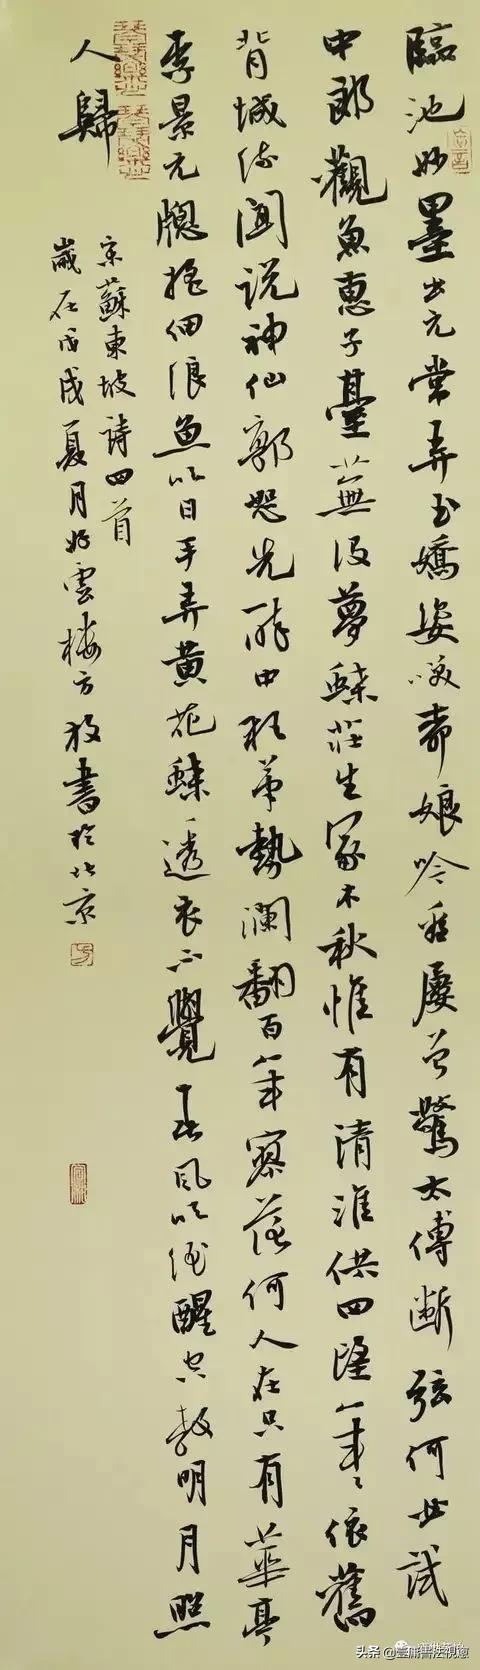 臨池妙墨出元常弄玉嬌姿咲娘吟雪屢曾驚太傅斷弦何必試
中郎觀魚惠子臺蕪沒夢蝶莊生冢木秋惟有清淮供四望年〻依舊
背城流聞說神仙郭恕先醉中狂筆勢瀾翻百年寥落何人在只有華亭
李景元牕搖細浪魚吹日手弄黃花蝶透衣不覺春風吹酒醒空教明月照
人歸
蘇東坡詩四首
歲在戊戌夏月好雲樓方放書於北京
头条